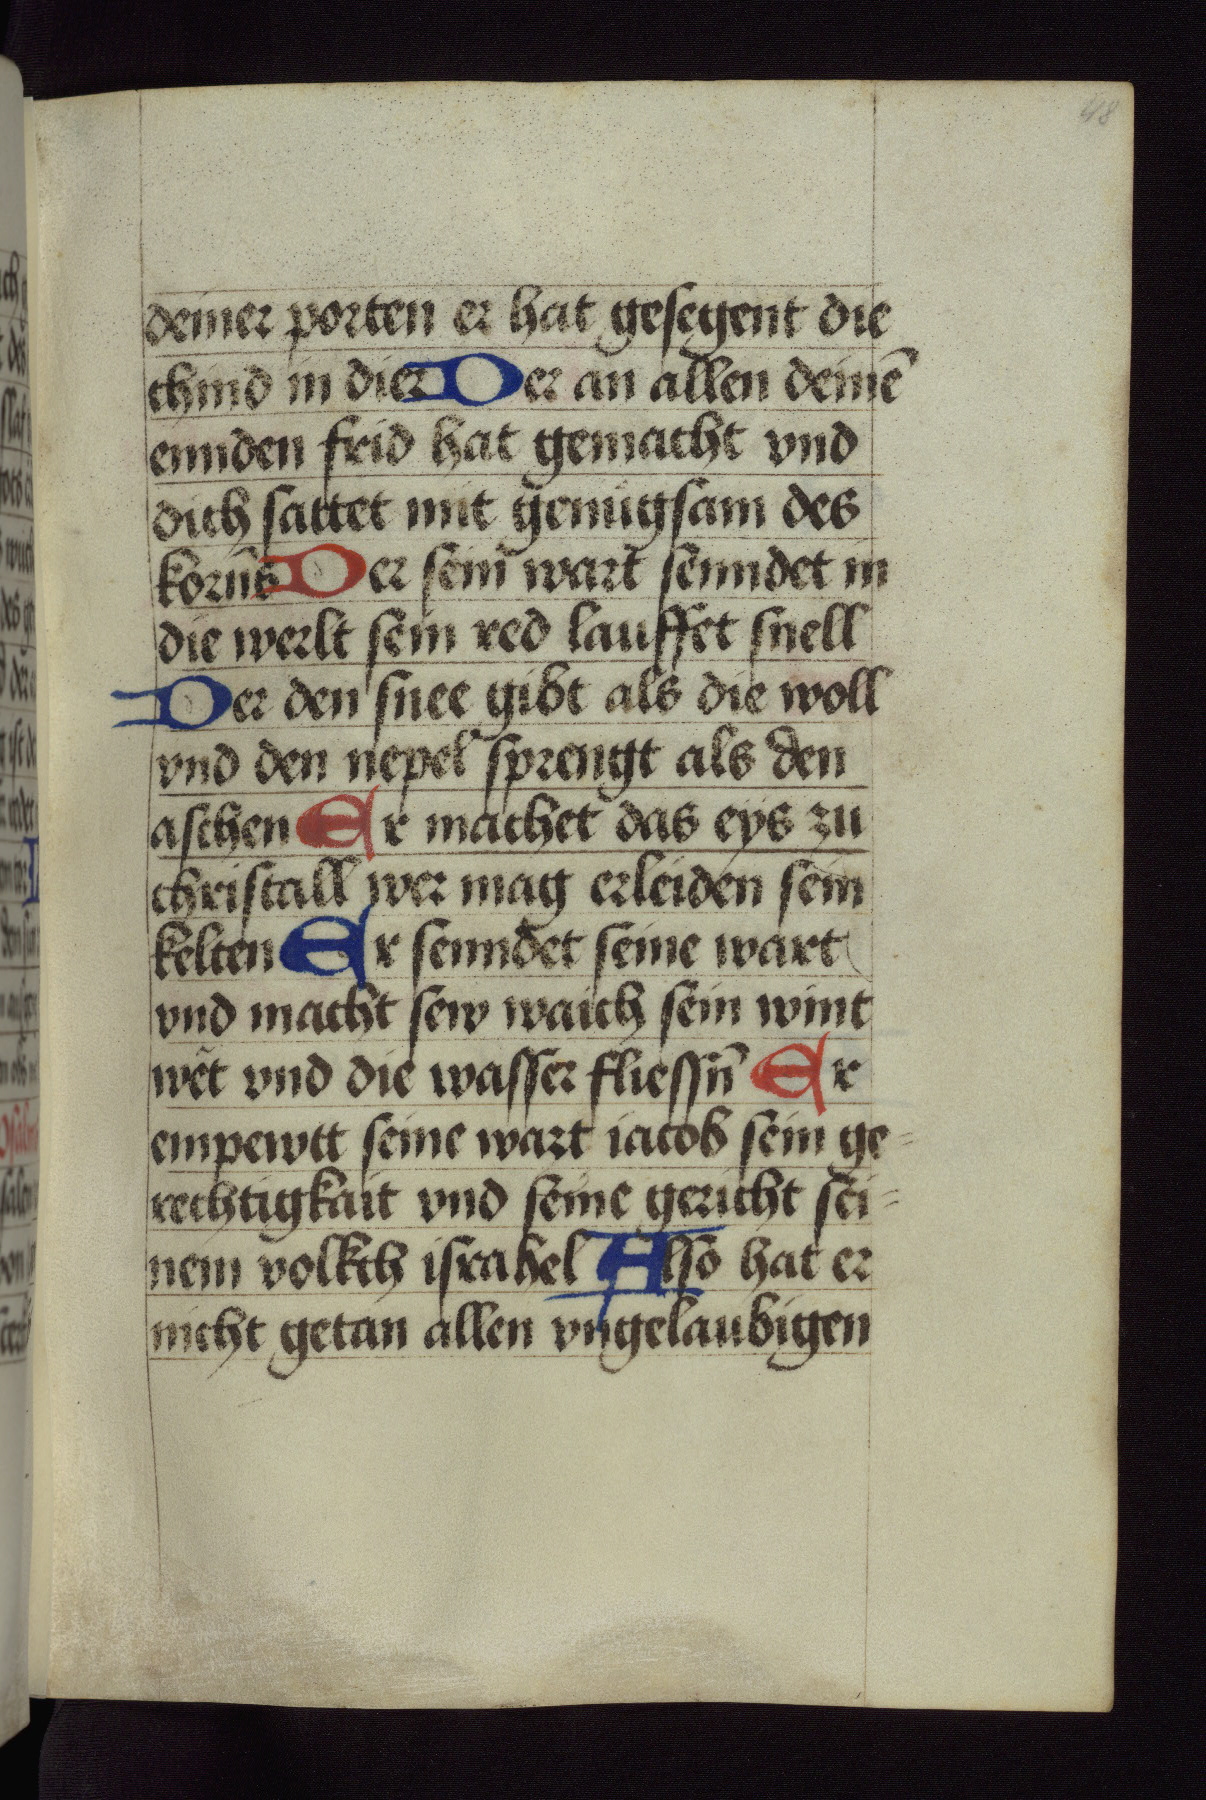 48
deiner porten er hat gesegent die
chind in dier Der an allen deinē
ennden frid hat gemacht vnd
dich sattet mit genugsam des
korns Der sein wart senndet in
die werlt sein red lauffet snell
Der den snee gibt als die woll
vnd den nepel sprengt als den
aschen Er machet das eys zu
christall wer mag erleiden sein
kelten Er senndet seine wart
vnd macht sew waich sein wint
wět vnd die wasser fliessn̄ Er
empewtt seine wart iacob sein ge=
rechtigkait vnd seine gericht sei=
nem volkch israhel Also hat er
nicht getan allen vngelaubigen